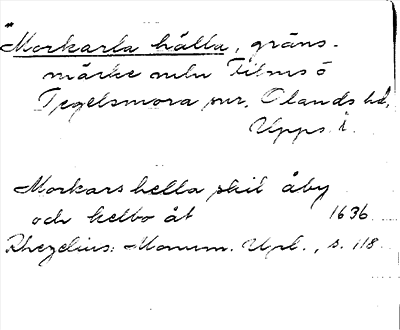 Morkarla hälla, gräns-
märke mln Films o
Tegelsmora snr, Olands hd,
Upps. l.
Morkars hella skil åby
och kelbo åt 1636
Rhezelius: Monum. Upl., s. 118